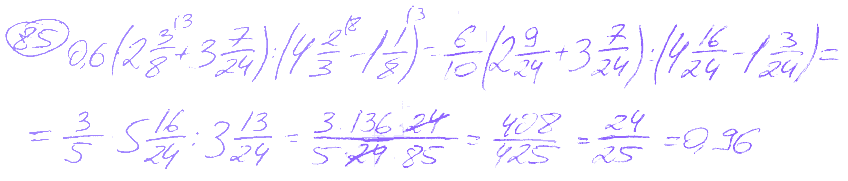 85 0,6(2 3/8 + 3 7/24) : (4 2/3 - 1 1/8) = 6/10 (2 9/24 + 3 7/24) : (4 16/24 - 1 3/24) =
= 3/5 · 5 16/24 : 3 13/24 = 3 · 136 · 24 / 5 · 24 · 85 = 408/425 = 24/25 = 0,96